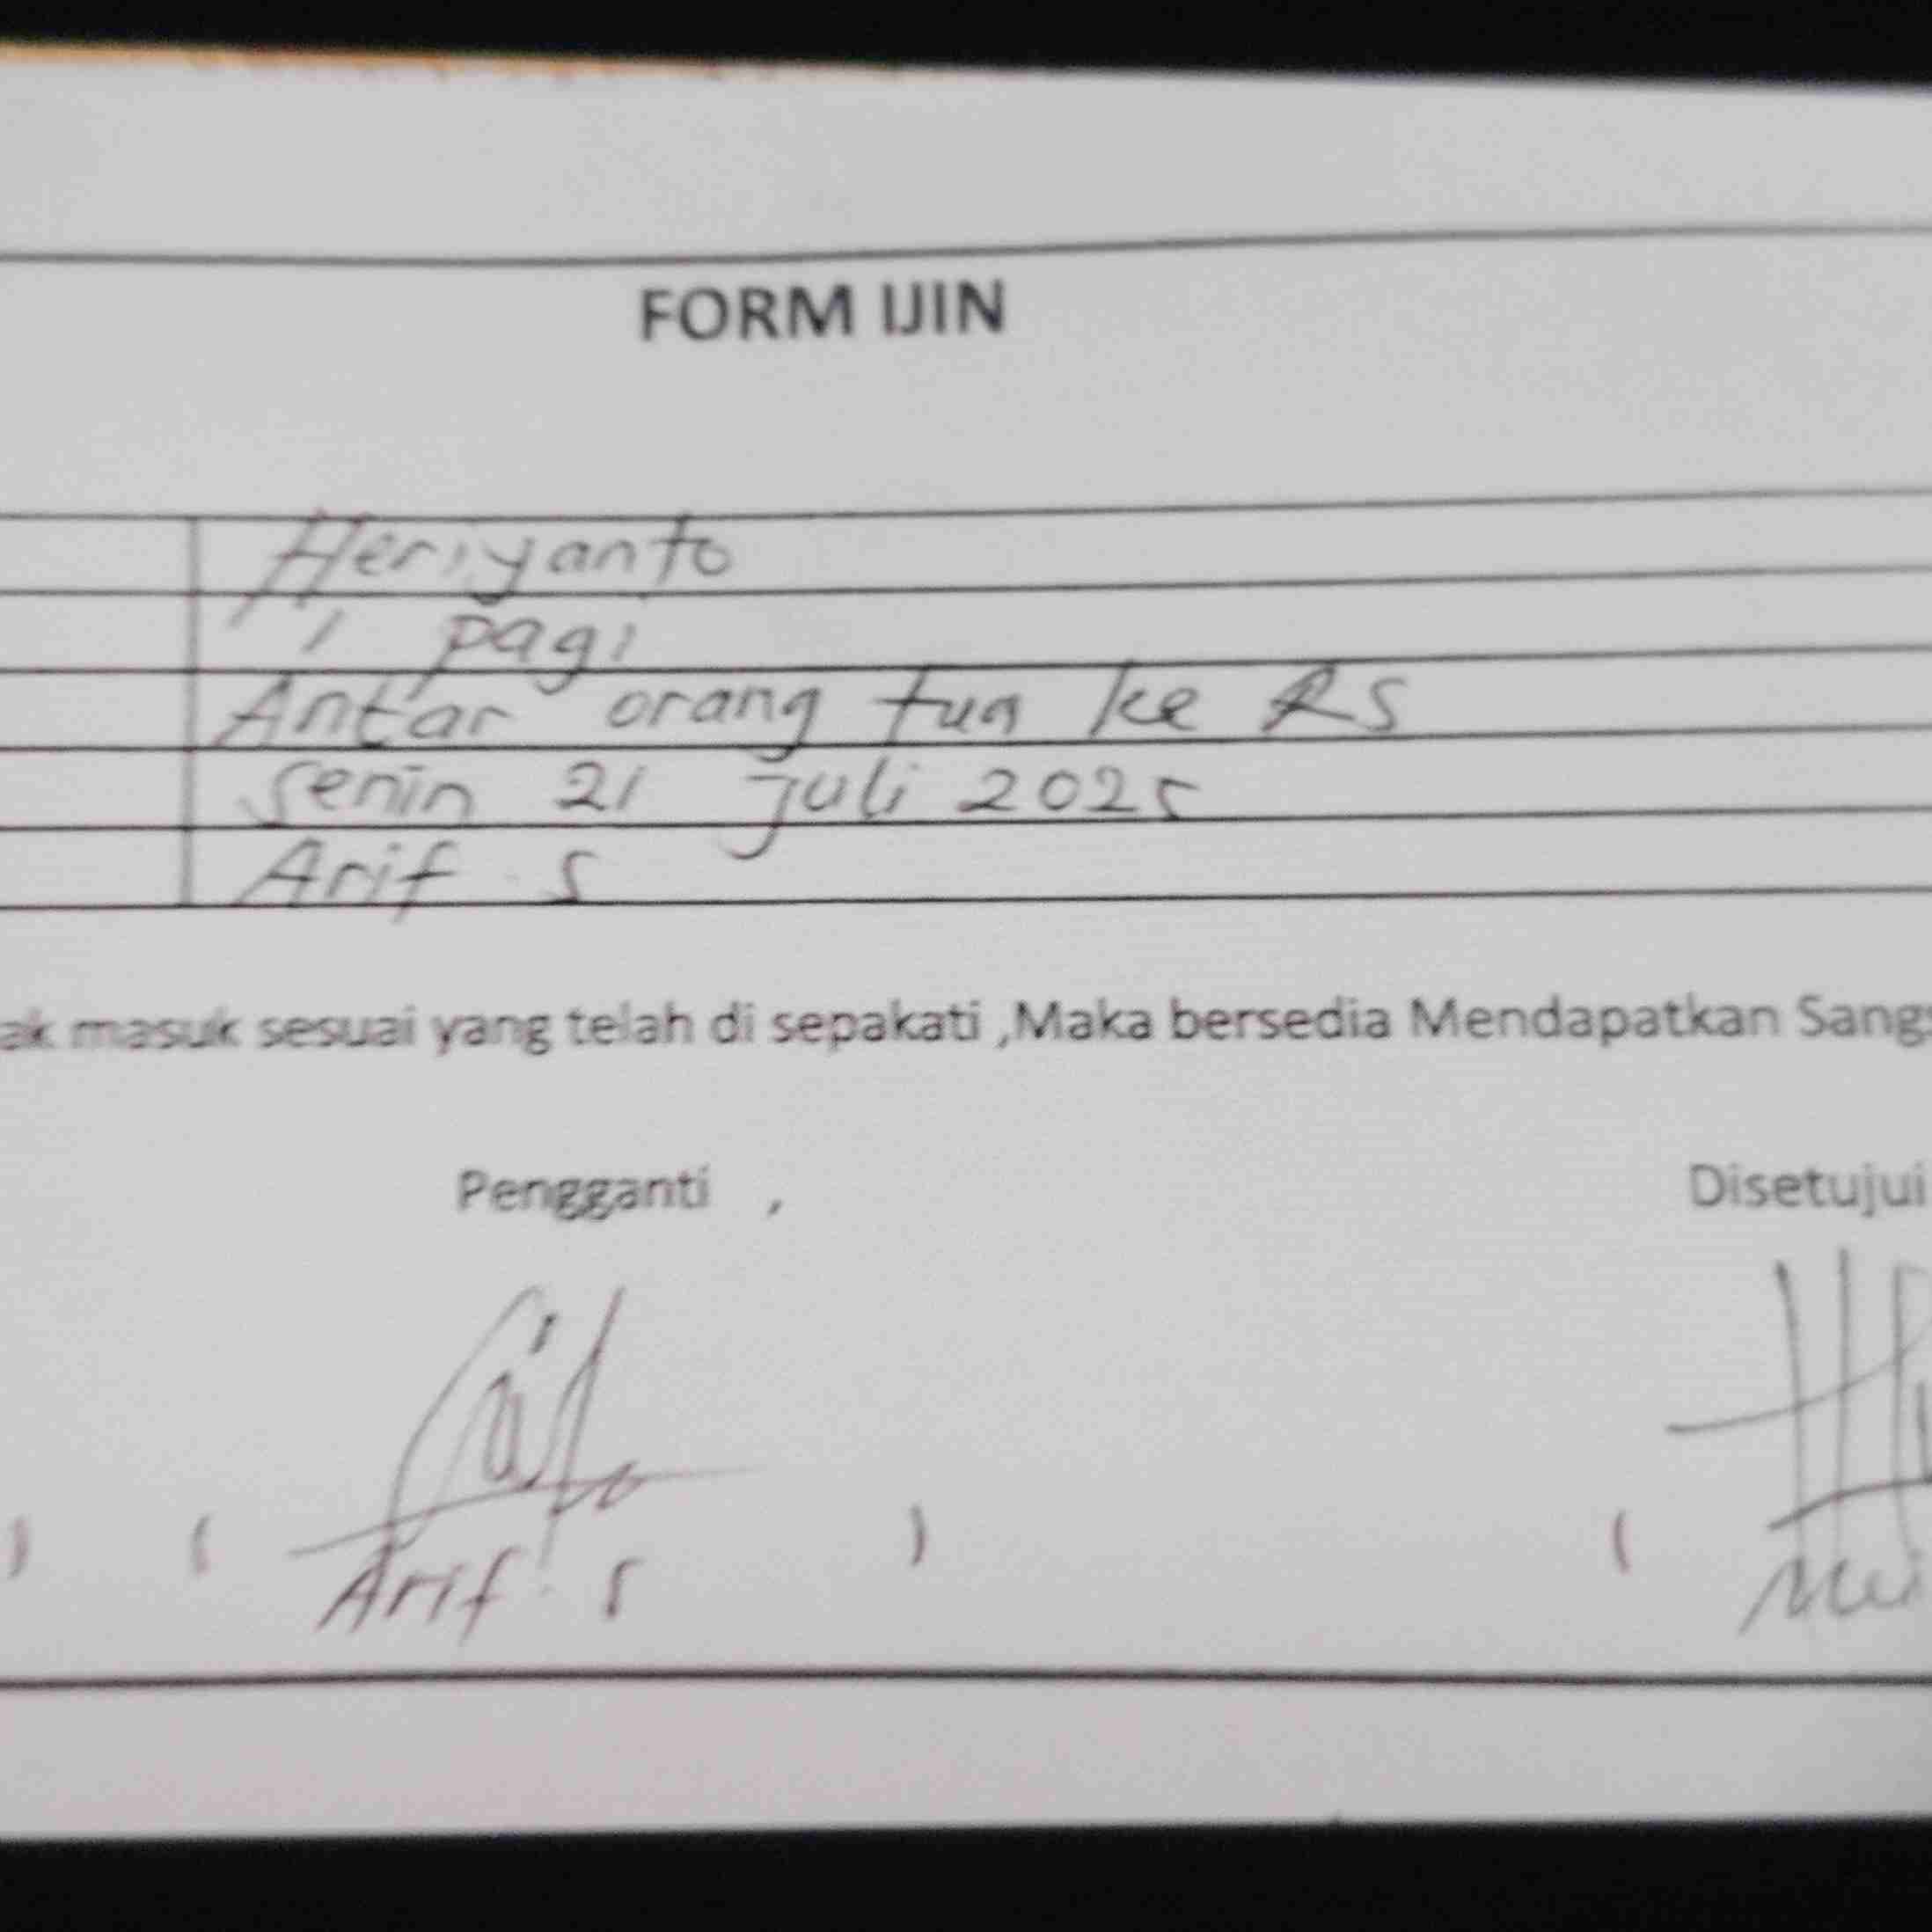 FORM IJIN
Heriyanto
1 pagi
Antar orang tua ke RS
Senin 21 Juli 2025
Arif S
ak masuk sesuai yang telah di sepakati ,Maka bersedia Mendapatkan Sang
Pengganti , Disetujui
) ( Arif S ) (